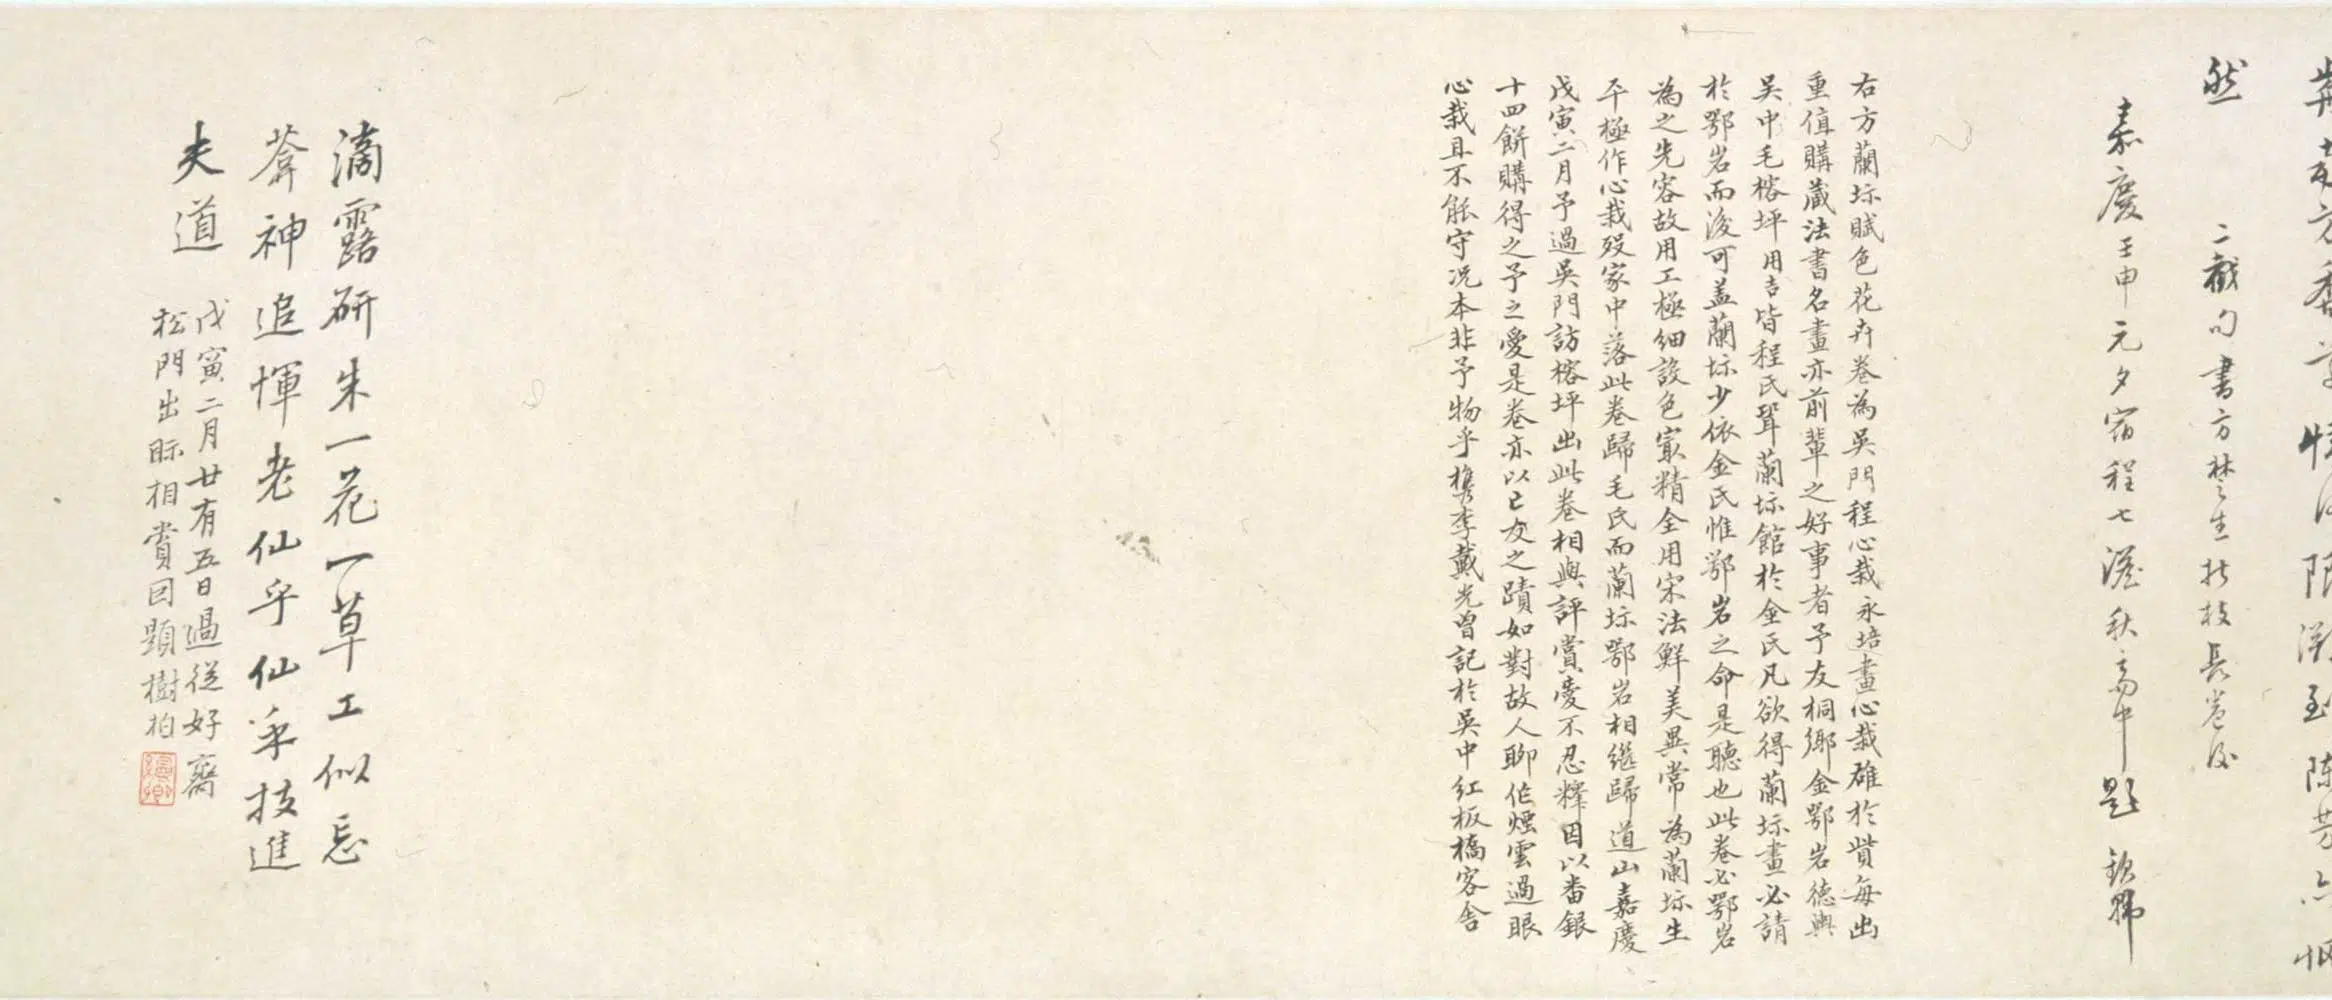 然
二截句書方楚生折枝長卷後
嘉慶壬申元夕宿程七澹秋斋中題
右方蘭坻賦色花卉卷為吳門程心栽永培畫心栽雄於貲每出
重值購藏法書名畫亦前輩之好事者予友桐鄉金鄂岩德輿
吳中毛榕坪用吉皆程氏壻蘭坻館於金氏凡欲得蘭坻畫必請
於鄂岩而後可盖蘭坻少依金氏惟鄂岩之命是聽也此卷必鄂岩
為之先容故用工極細設色寂精全用宋法鮮美異常為蘭坻生
平極作心栽歿家中落此卷歸毛氏而蘭坻鄂岩相繼歸道山嘉慶
戊寅二月予過吳門訪榕坪出此卷相與評賞愛不忍釋因以番銀
十四餅購得之予之愛是卷亦以亡友之蹟如對故人聊作煙雲過眼
心栽且不能守况本非予物乎檇李戴光曾記於吳中紅板橋客舍
滴露研朱一花一草工似忘
蒼神追惲老仙乎仙乎技進
夫道
戊寅二月廿有五日過從好齋
松門出眎相賞因題樹柏